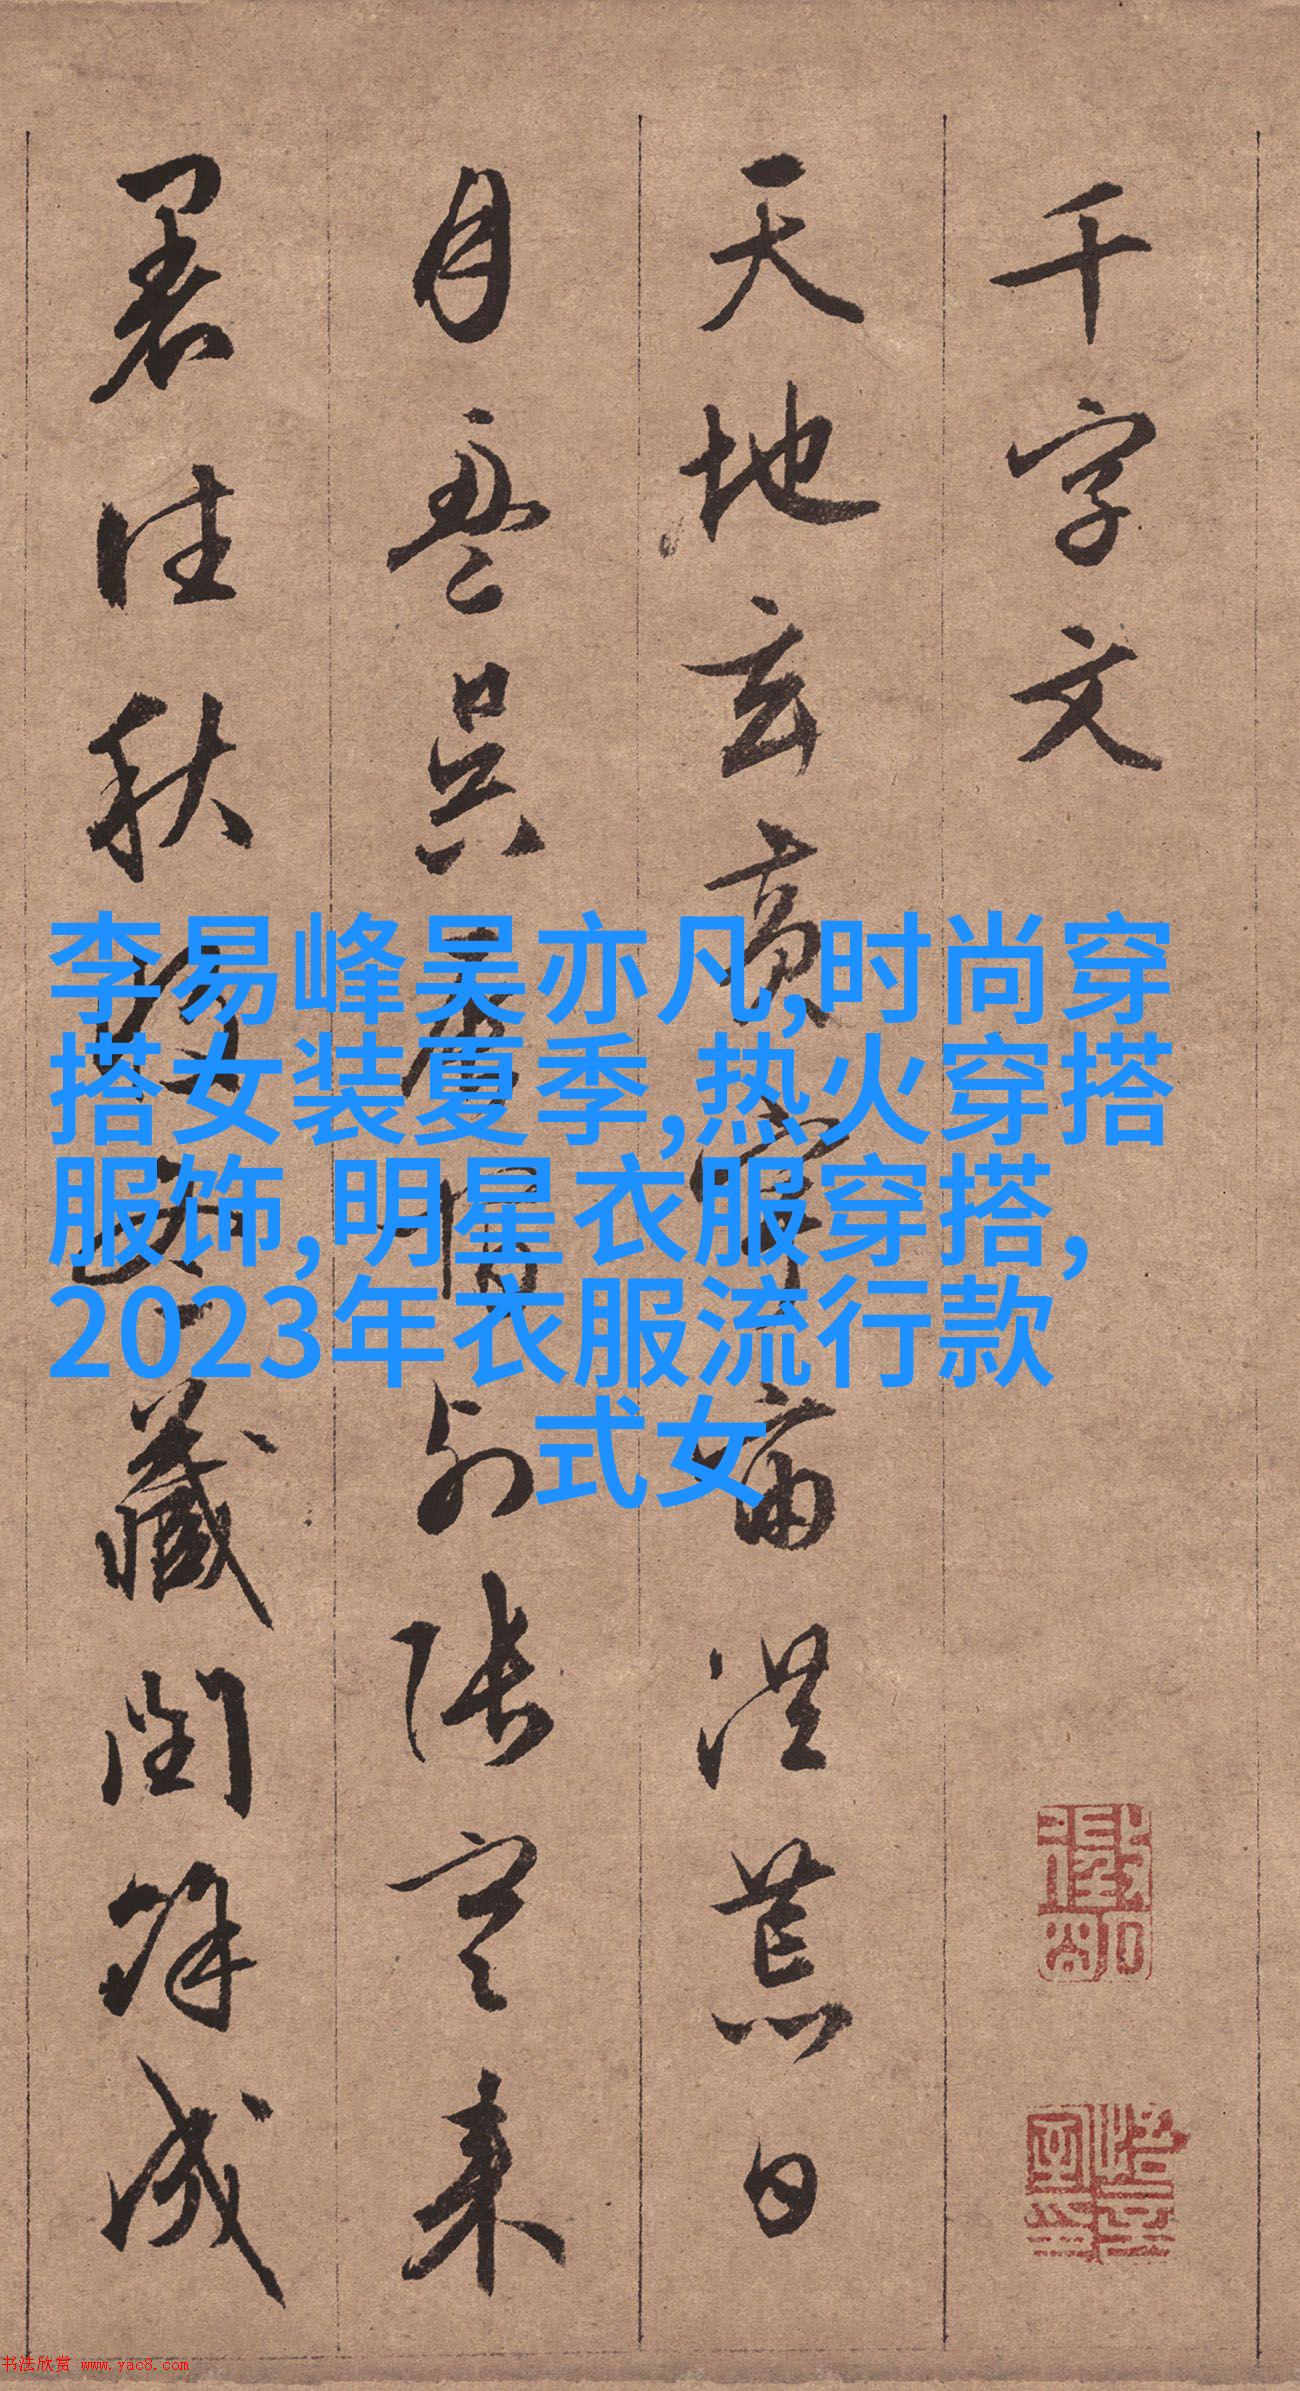 千字文
天地玄黄宇宙洪荒日
月盈昃辰宿列張寒来
暑往秋收冬藏閏餘成
李易峰吴亦凡,时尚穿
搭女装夏季,热火穿搭
服饰,明星衣服穿搭,
2023年衣服流行款
式女
书法欣赏 www.yac8.com